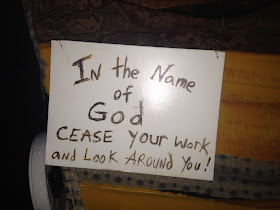 In the Name
of
God
CEASE Your Work
and Look Around You!